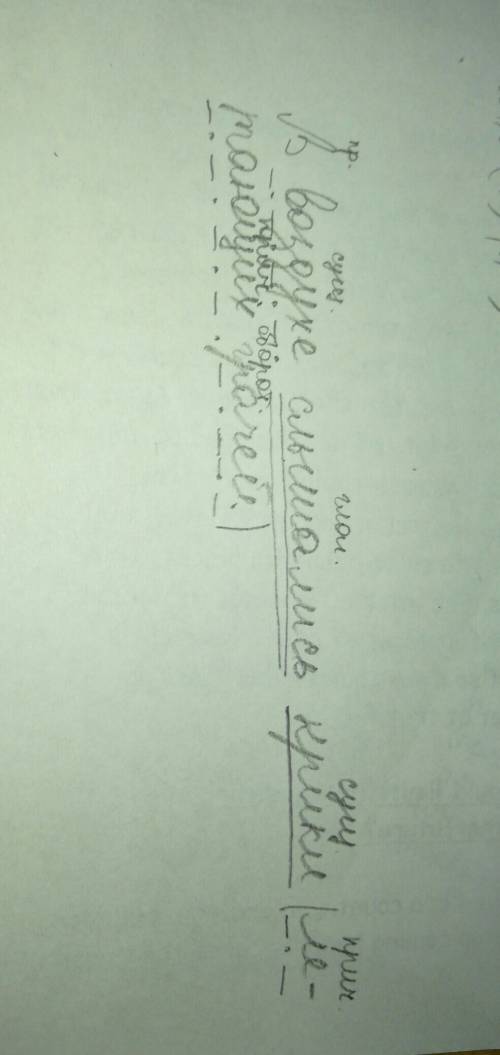 пр. сущ. глаг. сущ прич.
В воздухе слышались крики (ме-
прич. оборот
тающих грачей.)